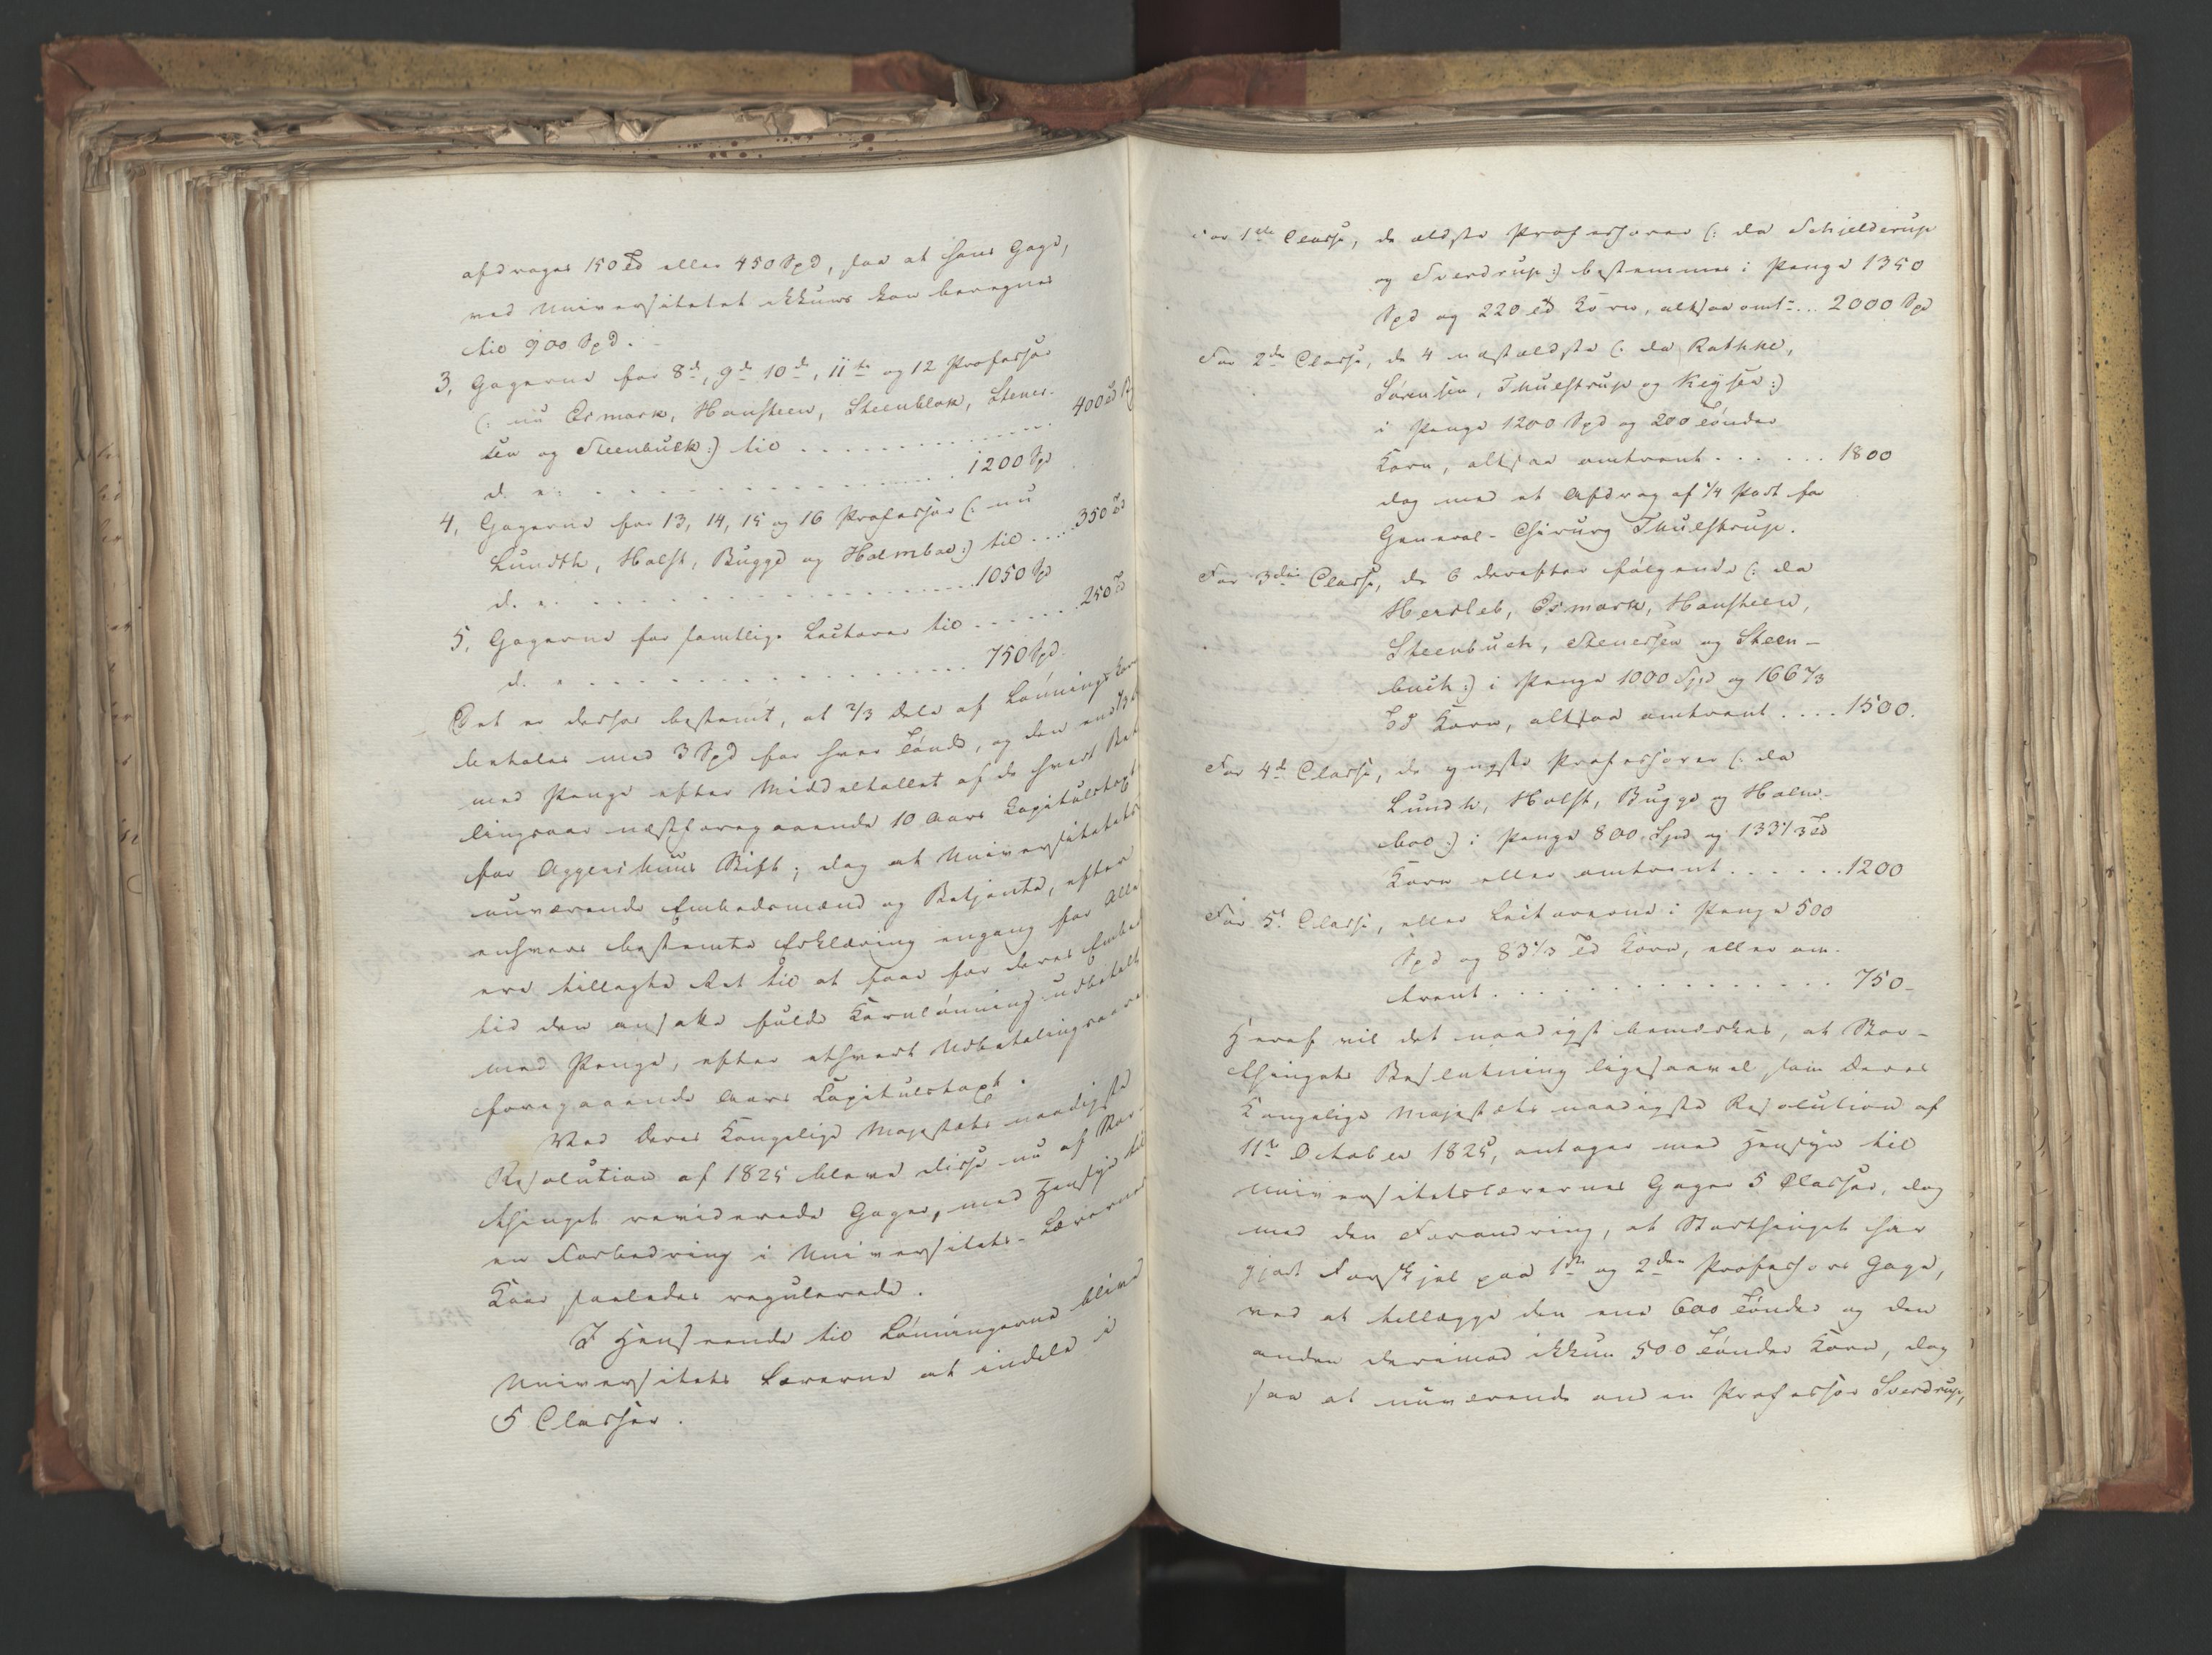 afdrages 150 Td eller 450 Spd, saa at hans Gage,
ved Universitetet ikkuns kan beregnes
til 900 Spd.
3, Gagerne for 8d, 9de 10de, 11te og 12 Professor
(: nu Esmark, Hansteen, Steenblok, Stener-
sen og Steenbuck :) til . . . . . . . . . . . 400 Td
d. e. . . . . . . . . . . . . . . . 1200 Spd
4, Gagerne for 13, 14, 15 og 16 Professor (: nu
Lundth, Holst, Bugge og Holmboe :) til .... 350 Td
d. e. . . . . . . . . . . . . . . . 1050 Spd
5, Gagerne for samtlige Lectorer til . . . . . . 250 Td
d. e. . . . . . . . . . . . . . . . 750 Spd.
Det er derhos bestemt, at 2/3 Dele af Lønningskorn
betales med 3 Spd for hver Tønde, og den ene 1/3
med Penge efter Middeltallet af de hvert Beta
lingsaar næstforegaaende 10 Aars Kapitulstaxt
for Aggershuus Stift; dog at Universitetets
nuværende Embedsmænd og Betjente, efter
enhvers bestemte Erklæring engang for Alle
ere tillagte Ret til at faae for deres Embeds
tid den ansatte fulde Kornlønning udbetalt
med Penge, efter ethvert Udbetalingsaars
foregaaende Aars Capitulstaxt.
Ved Deres Kongelige Majestæts naadigste
Resolution af 1825 bleve disse nu af Stor
thinget reviderede Gager, med Hensyn til
en Forbedring i Universitets-Lærernes
Kaar saaledes regulerede.
I Henseende til Lønningerne blive
Universitets Lærerne at inddele i
5 Classer.
For 1ste Classe, de ældste Professorer (: da Schjelderup
og Sverdrup :) bestemmes i Penge 1350
Spd og 220 Td Korn, altsaa omtr... 2000 Spd
For 2den Classe, de 4 næstældste (: da Rathke,
Sørensen, Thulstrup og Keyser :)
i Penge 1200 Spd og 200 Tønder
Korn, altsaa omtrent . . . . . . 1800
dog med et Afdrag af 1/4 Part for
General-Chirurg Thulstrup.
For 3die Classe, de 6 derefter følgende (: da
Hersleb, Esmark, Hansteen,
Steenbuch, Stenersen og Steen-
buch :) i Penge 1000 Spd og 166 2/3
Td Korn, altsaa omtrent . . . . 1500.
For 4de Classe, de yngste Professorer (: da
Lundh, Holst, Bugge og Holm-
boe :) i Penge 800 Spd og 133 1/3 Td
Korn eller omtrent . . . . . . 1200
For 5te Classe, eller Lectorerne i Penge 500
Spd og 83 1/3 Td Korn, eller om-
trent . . . . . . . . . . . . . . 750-
Heraf vil det naadigst bemærkes, at Stor-
thingets Beslutning ligesaavel som Deres
Kongelige Majestæts naadigste Resolution af
11te October 1825, antager med Hensyn til
Universitetslærernes Gager 5 Classer, dog
med den Forandring, at Storthinget har
gjort Forskjel paa 1ste og 2den Professors Gage,
ved at tillægge den ene 600 Tønder og den
anden derimod ikkun 500 Tønder Korn, dog
saa at nuværende anden Professor Sverdrup,